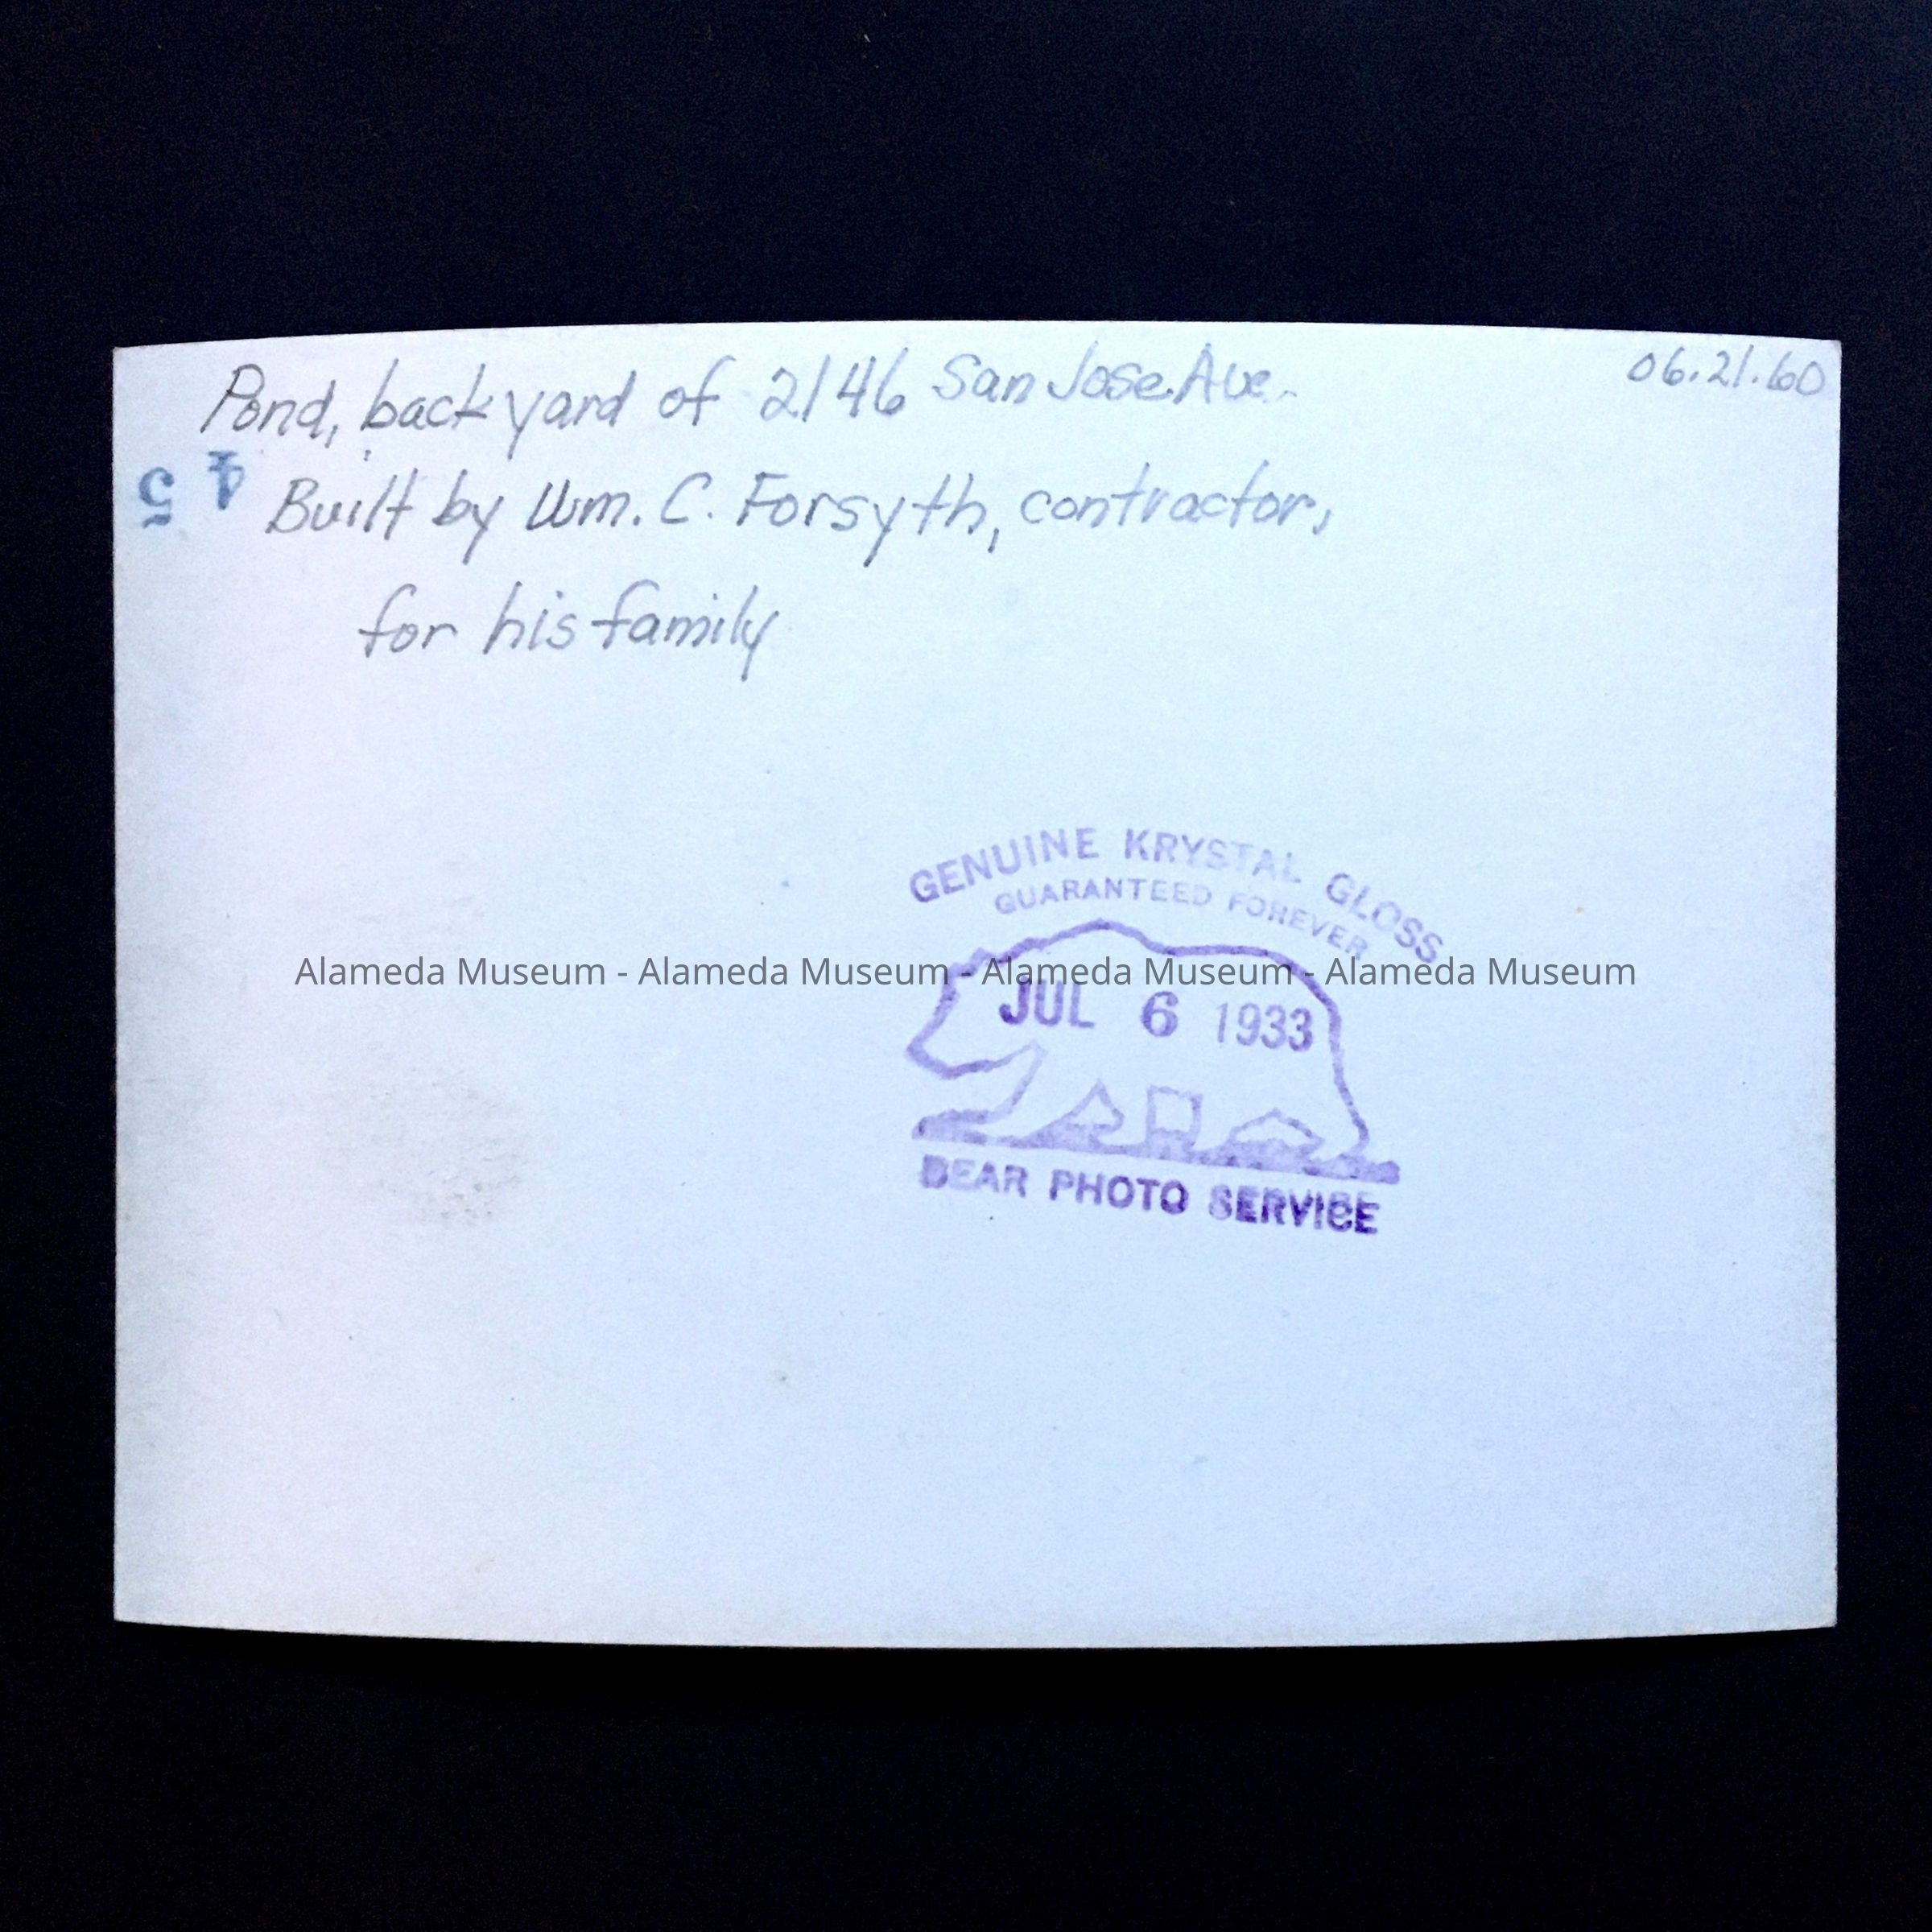 Pond, back yard of 2146 San Jose Ave.
06.21.60
4 5
Built by Wm. C. Forsyth, contractor,
for his family
GENUINE KRYSTAL GLOSS
GUARANTEED FOREVER
Alameda Museum - Alameda Museum - Alameda Museum - Alameda Museum
JUL 6 1933
BEAR PHOTO SERVICE